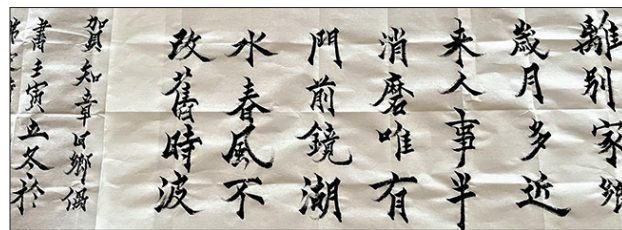 離別家鄉
歲月多近
来人事半
消磨唯有
門前鏡湖
水春風不
改舊時波
賀知章回鄉偶
書壬寅立冬於